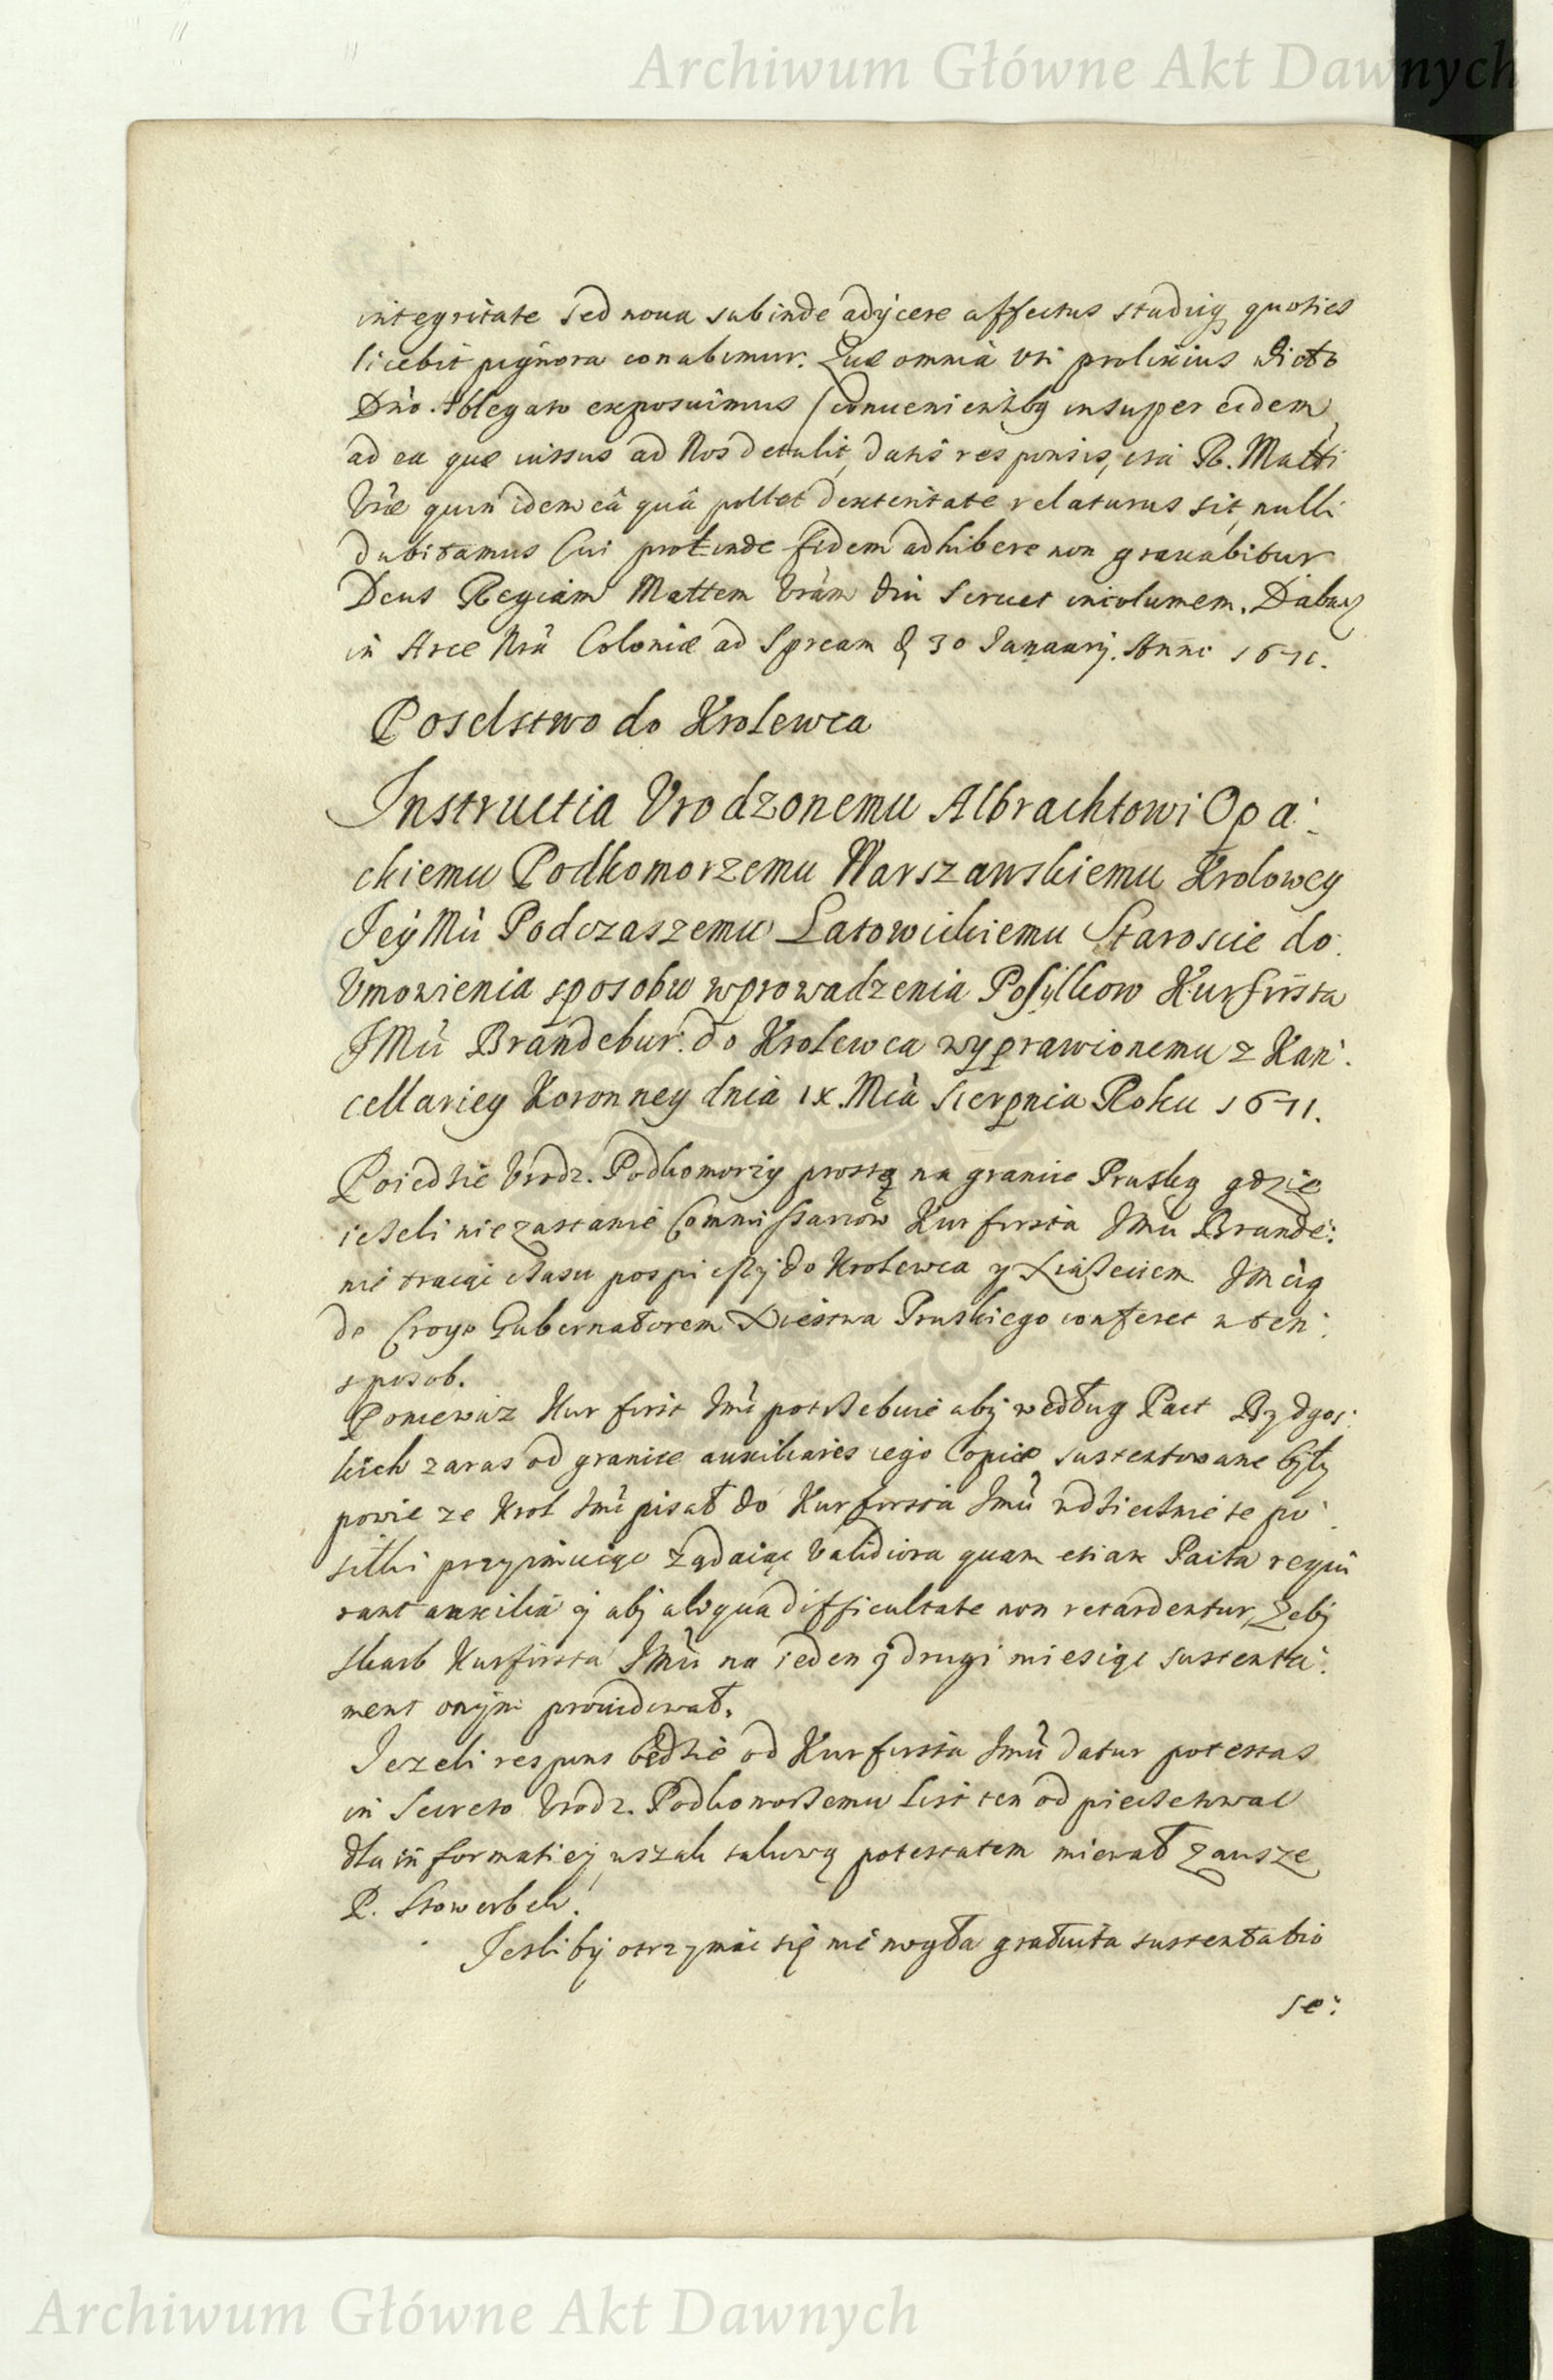 Archiwum Główne Akt Dawnych
integritate sed noua subinde adijcere affectus studijq quoties
licebit pignora conabimur. Quæ omnia vti prolixius dicto
Dno. Ablegato exposuimus / conuenientibq insuper eidem
ad ea quæ iussus ad Nos detulit, datis responsis, ita R. Matti
Vræ quin idem eâ quâ pollet dexteritate relaturus sit, nulli
dubitamus Cui protinde fidem adhibere non grauabitur
Deus Regiam Mattem Vram diu seruet incolumem. Dabax
in Arce Nra Coloniæ ad Spream d 30 Januarij. Anni 1671.
Poselstwo do Krolewca
Instructia Vrodzonemu Albrachtowi Opa:
ckiemu Podkomorzemu Warszawskiemu Krolowey
Jey Mci Podczaszemu Latowickiemu Staroscie do
Vmowienia sposobu wprowadzenia Posyłkow Kurfirsta
JMci Brandebur. do Krolewca wyprawionemu z Kan:
cellariey Koronney dnia ix. Mca Sierpnia Roku 1671.
Poiedzie Vrodz. Podkomorzy prostą na granice Pruską gdzie
ieżeli nie zastanie Commissarzow Kurfirsta Jmci Brande:
nie tracąc czasu pospieszy do Krolewca y Xiążęciem Jmcią
de Croyo Gubernatorem Xięstwa Pruskiego conferet w ten
sposob.
Poniewaz Kurfirst Jmci potrzebuie aby według Pact Bydgos:
kich zaras od granice auxiliares iego Copiæ sustentowane były
powie ze Krol Jmci pisał do Kurfirsta Jmci wdzięcznie te po
siłki przyimuiąc Ządaiąc Validiora quam etiam Pacta requi
rant auxilia y aby aliqua difficultate non retardentur, Zeby
skarb Kurfirsta JMci na ieden y drugi miesiąc sustenta:
ment onym prouidował.
Jezeli respons będzie od Kurfirsta Jmci datur potestas
in Secreto Vrodz. Podkomorzemu list ten odpieczętować
dla informatiey, wszak takową potestatem miewał zawsze
P. Stowerbek.
Jesliby otrzymać się nie mogła gratuita sustentatio
se:
Archiwum Główne Akt Dawnych